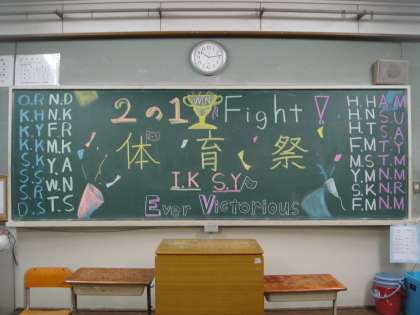 2の1 WIN Fight!
体育祭
I.K S.Y
Ever Victorious
O.R N.D
K.H N.K
K.Y F.R
K.K M.K
S.K Y.A
S.S W.N
S.R T.S
D.S
H.H A.M
H.N S.U
H.T S.A
F.M T.Y
M.S T.M
Y.M N.M
S.K N.R
F.M N.M